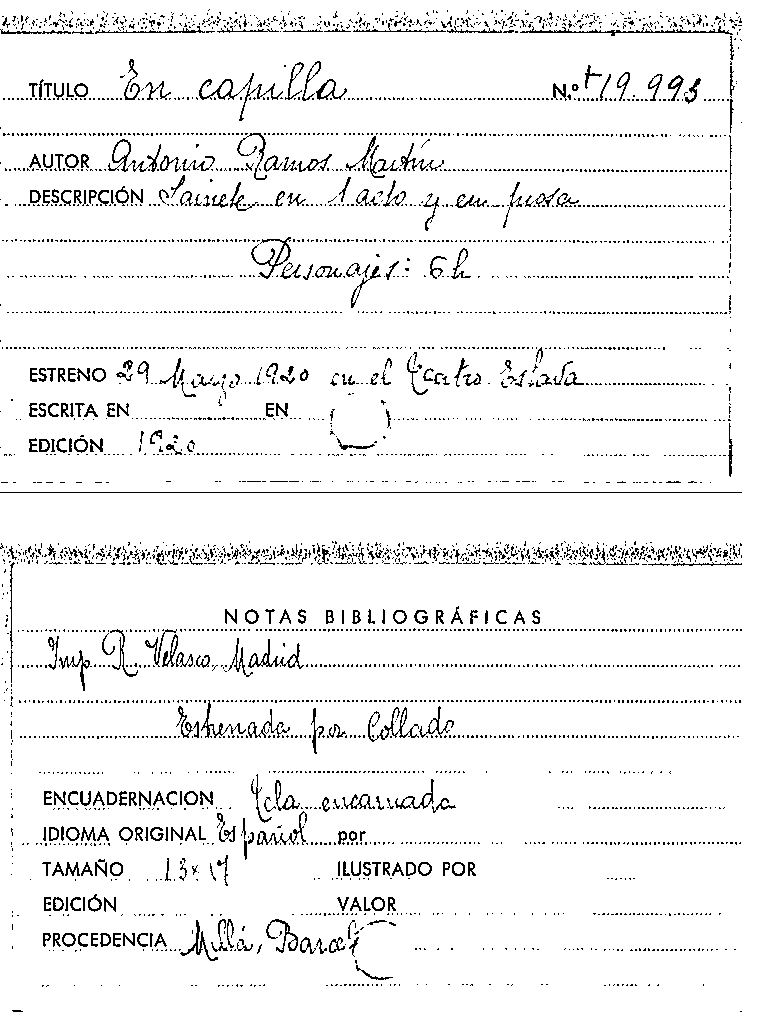 TÍTULO En capilla N.º t 19.993
AUTOR Antonio Ramos Martín
DESCRIPCIÓN Sainete en 1 acto y en prosa
Personajes: 6 h
ESTRENO 29 Mayo 1920 en el Teatro Eslava
ESCRITA EN EN
EDICIÓN 1920
NOTAS BIBLIOGRÁFICAS
Imp R. Velasco, Madrid
Estrenada por Collado
ENCUADERNACION Tela encarnada
IDIOMA ORIGINAL Español por
TAMAÑO 13x17 ILUSTRADO POR
EDICIÓN VALOR
PROCEDENCIA Millá, Barcel